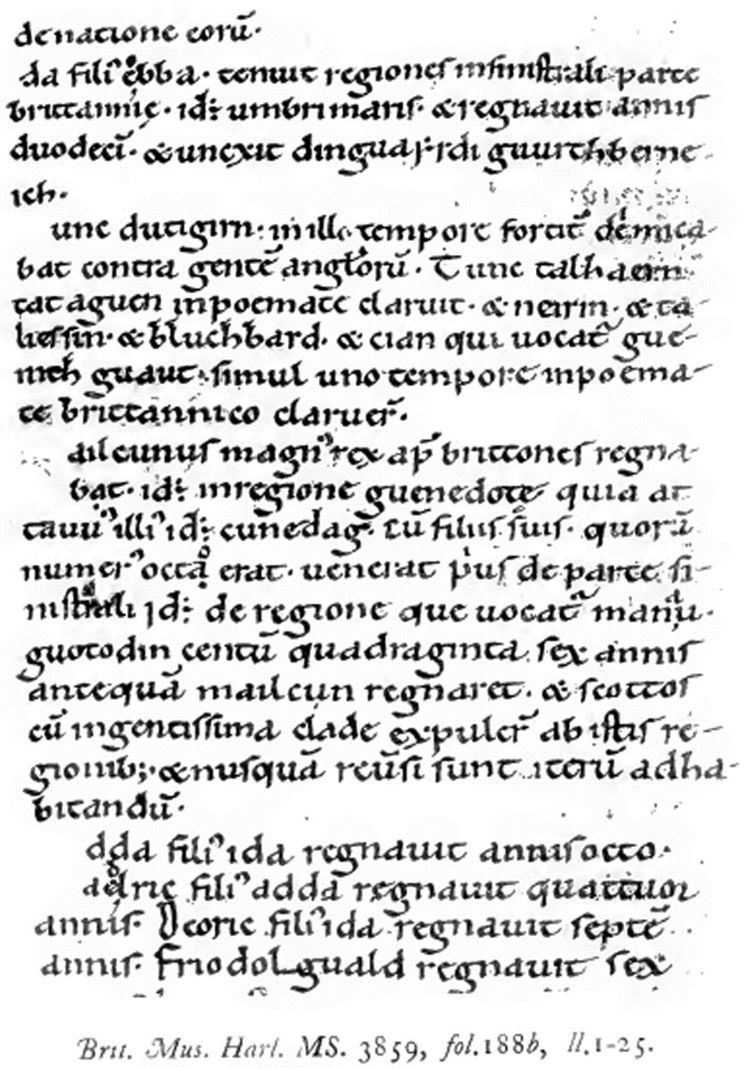 de natione eorū·
da filiꝰ ebba· tenuit regiones in sinistrali parte
brittannię· id÷ umbri maris· & regnauit annis
duodecī· & unexit dinguayrdi guurth berne-
ich·
unc dutigirn· in illo tempore fortit̄ dimica-
bat contra gentē anglorū· Tunc talhaern
tat aguen in poemate claruit· & neirin· & ta-
liessin· & bluchbard· & cian qui uocat̄ gue-
nith guaut· simul uno tempore in poema-
te brittannico claruer̄·
ailcunus magnꝰ rex ap̄ brittones regna
bat· id÷ in regione guenedote quia at
tauuꝰ illiꝰ id÷ cunedag· cū filiis suis· quorū
numerꝰ octo erat· uenerat prius de parte si-
nistrali id÷ de regione que uocat̄ manau·
guotodin centū quadraginta sex annis
antequā mailcun regnaret· & scottos
cū ingentissima clade expuler̄ ab istis re-
gionib;· & nusquā reūsi sunt iterū ad ha-
bitandū·
dda filiꝰ ida regnauit annis octo·
aedric filiꝰ adda regnauit quattuor
annis· Deoric filiꝰ ida regnauit septē
annis· Friodolguald regnauit sex
Brit. Mus. Harl. MS. 3859, fol. 188b, ll. 1-25.